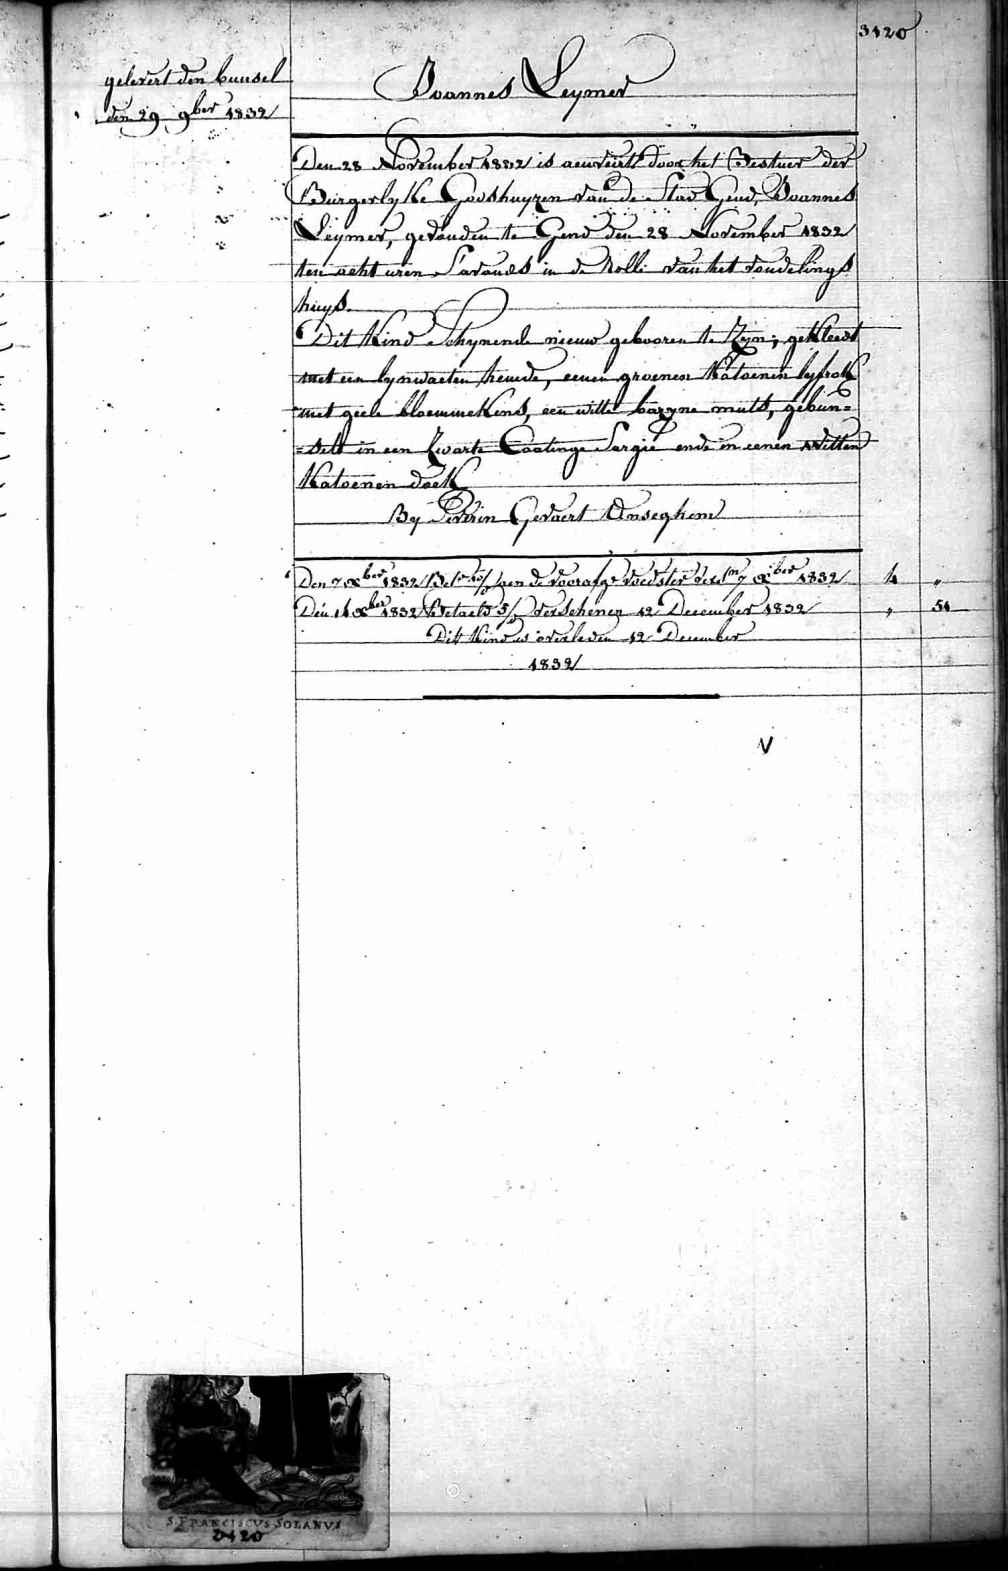 3420
gelevert den bunsel
den 29 9ber 1832
Joannes Leymer
Den 28 November 1832 is aenveirt door het Bestuer der
Burgerlyke Godshuyzen van de Stad Gend, Joannes
Leymer, gevonden te Gend den 28 November 1832
ten acht uren s'avonds in de Rolle van het vondelings
huys.
Dit Kind schynende nieuw gebooren te Zyn; gekleedt
met een lynwaeten hemde, eenen groenen Katoenen lyfrok
met geele bloemmekens, een witte bazyne muts, gebun=
=delt in een zwarte Caatinge Sargie ende in eenen witten
Katoenen doek
By Severin Gevaert Anseghem
Den 7 Xber 1832 aen de voorafge voedster 7 Xber 1832 4 "
Den 14 Xber 1832 betaeld verschenen 12 December 1832 " 51
Dit Kind is overleden 12 December
1832
V
S. FRANCISCUS SOLANUS
3420